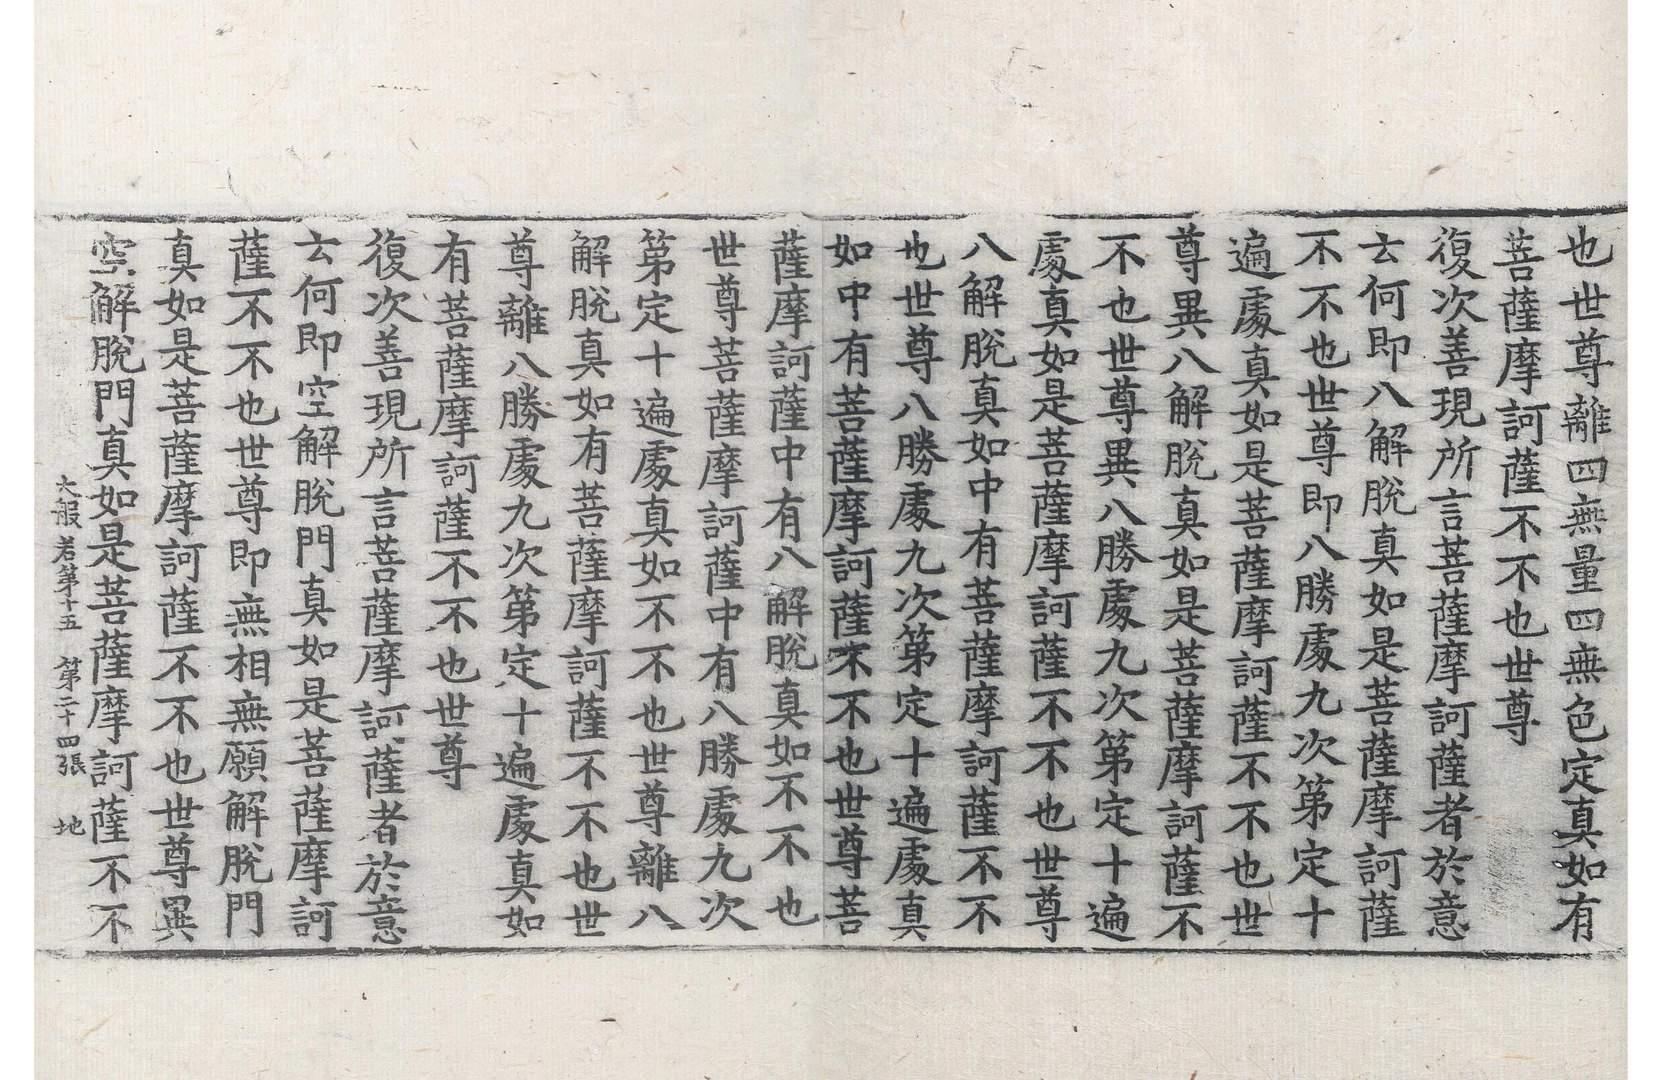 也世尊離四無量四無色定真如有
菩薩摩訶薩不不也世尊
復次善現所言菩薩摩訶薩者於意
云何即八解脫真如是菩薩摩訶薩
不不也世尊即八勝處九次第定十
遍處真如是菩薩摩訶薩不不也世
尊異八解脫真如是菩薩摩訶薩不
不也世尊異八勝處九次第定十遍
處真如是菩薩摩訶薩不不也世尊
八解脫真如中有菩薩摩訶薩不不
也世尊八勝處九次第定十遍處真
如中有菩薩摩訶薩不不也世尊菩
薩摩訶薩中有八解脫真如不不也
世尊菩薩摩訶薩中有八勝處九次
第定十遍處真如不不也世尊離八
解脫真如有菩薩摩訶薩不不也世
尊離八勝處九次第定十遍處真如
有菩薩摩訶薩不不也世尊
復次善現所言菩薩摩訶薩者於意
云何即空解脫門真如是菩薩摩訶
薩不不也世尊即無相無願解脫門
真如是菩薩摩訶薩不不也世尊異
空解脫門真如是菩薩摩訶薩不不
大般若第十五 第二十四張 地